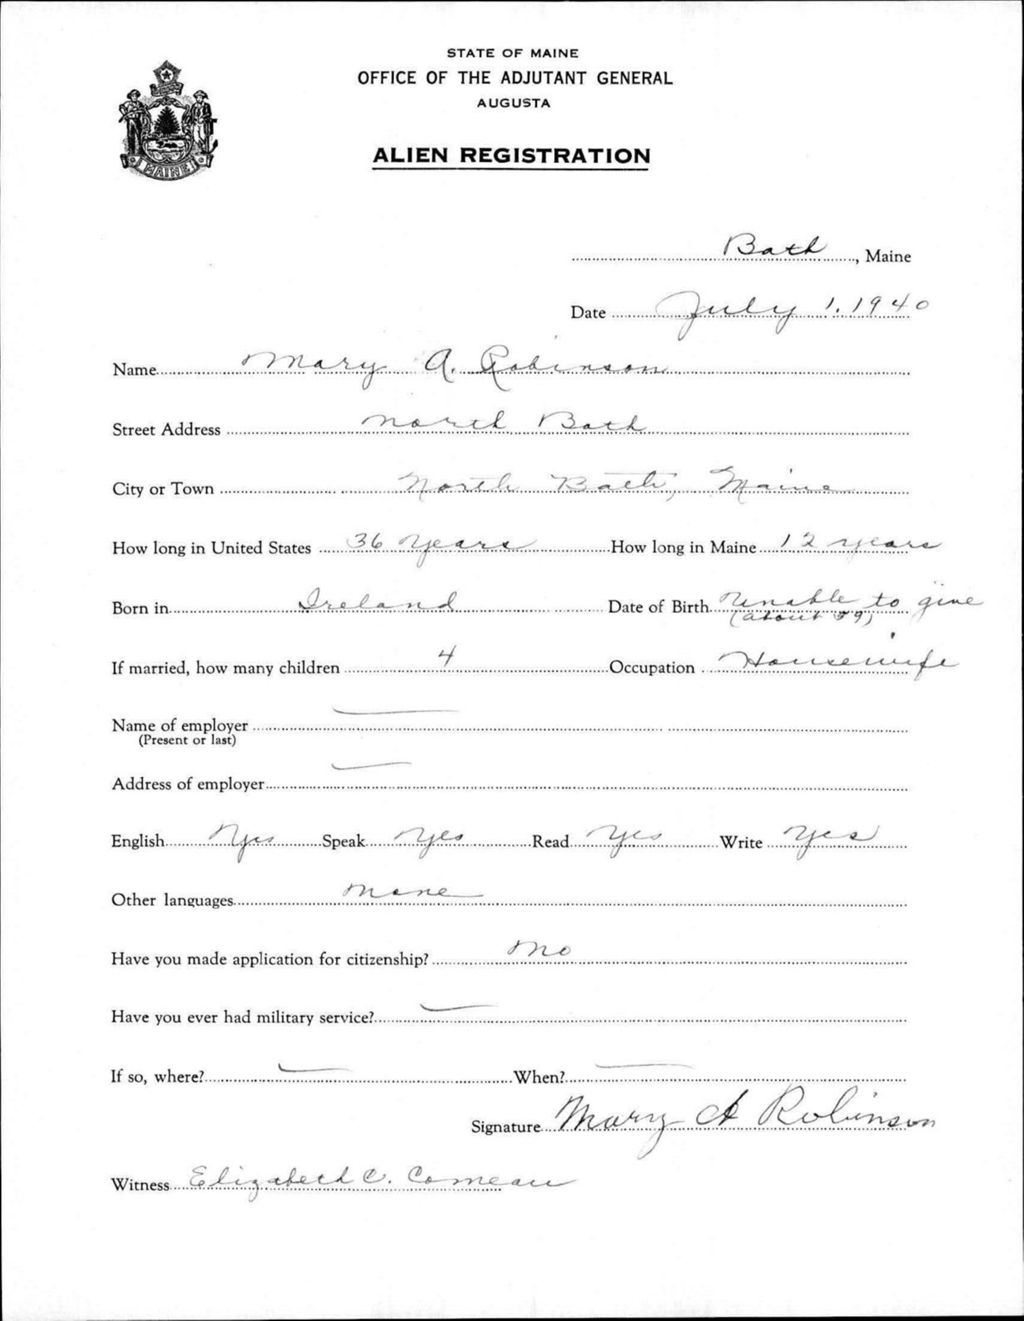 STATE OF MAINE
OFFICE OF THE ADJUTANT GENERAL
AUGUSTA
ALIEN REGISTRATION
MAINE
Bath, Maine
Date July 1, 1940
Name Mary A. Robinson
Street Address North Bath
City or Town North Bath, Maine
How long in United States 36 years How long in Maine 12 years
Born in Ireland Date of Birth Unable to give
(about 59)
If married, how many children 4 Occupation Housewife
Name of employer
(Present or last)
Address of employer
English Yes Speak Yes Read Yes Write Yes
Other languages None
Have you made application for citizenship? No
Have you ever had military service? —
If so, where? — When? —
Signature Mary A Robinson
Witness Elizabeth C. Comeau